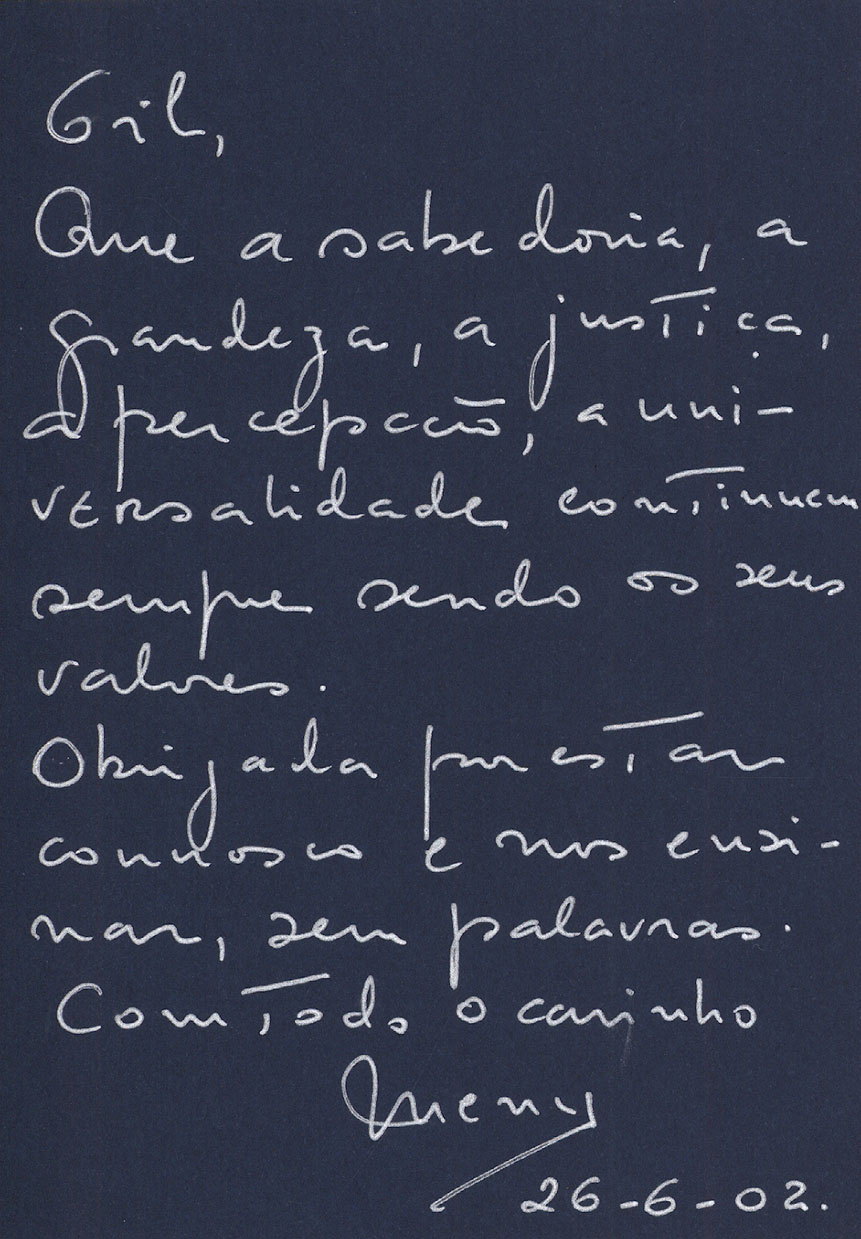 Gil,
Que a sabedoria, a
grandeza, a justiça,
a percepção, a uni-
versalidade continuem
sempre sendo os seus
valores.
Obrigada por estar
connosco e nos ensi-
nar, sem palavras.
Com todo o carinho
26-6-02.